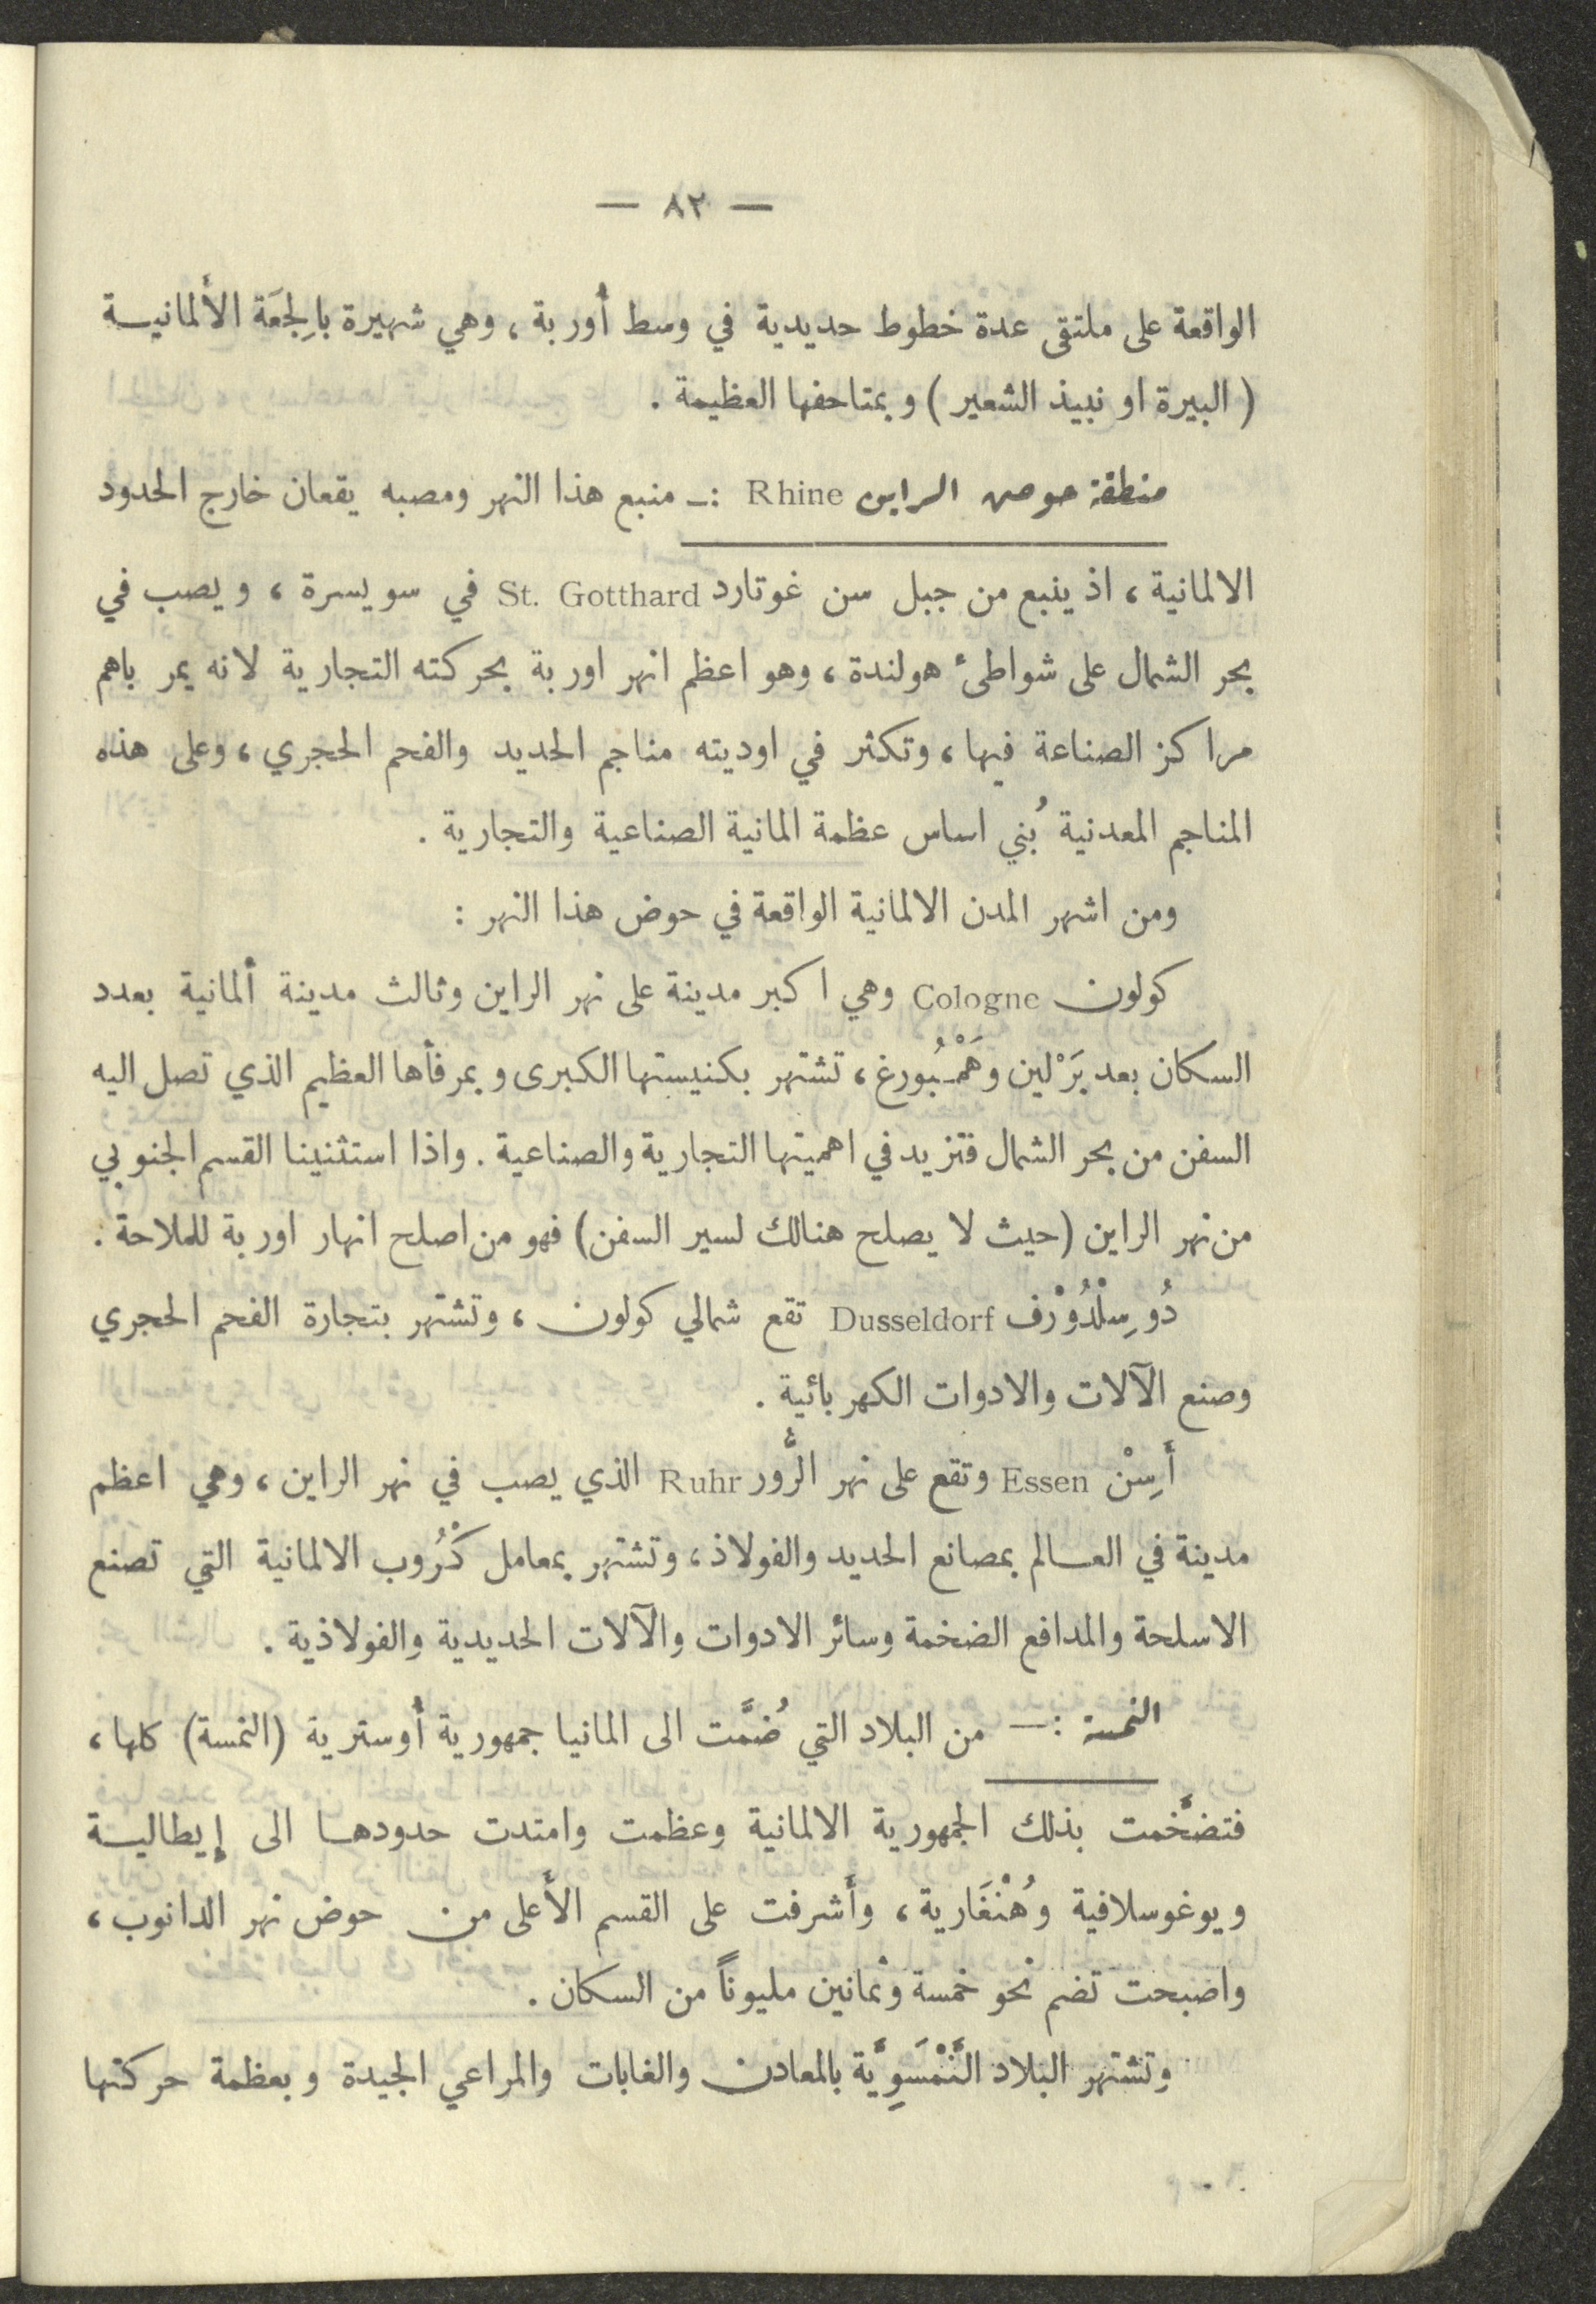 — ٨٢ —
الواقعة على ملتقى عدة خطوط حديدية في وسط أُوربة، وهي شهيرة بالجِعَة الألمانيـة
( البيرة او نبيذ الشعير ) وبمتاحفها العظيمة .
منطقة حوض الراين Rhine :ـ منبع هذا النهر ومصبه يقعان خارج الحدود
الالمانية، اذ ينبع من جبل سن غوتارد St. Gotthard في سويسرة، ويصب في
بحر الشمال على شواطئ هولندة، وهو اعظم انهر اوربة بحركته التجارية لانه يمر باهم
مراكز الصناعة فيها، وتكثر في اوديته مناجم الحديد والفحم الحجري، وعلى هذه
المناجم المعدنية بُني اساس عظمة المانية الصناعية والتجارية .
ومن اشهر المدن الالمانية الواقعة في حوض هذا النهر :
كولون Cologne وهي اكبر مدينة على نهر الراين وثالث مدينة ألمانية بعدد
السكان بعد بَرْلين وهَمْبُورغ، تشتهر بكنيستها الكبرى وبمرفأها العظيم الذي تصل اليه
السفن من بحر الشمال فتزيد في اهميتها التجارية والصناعية . واذا استثنينا القسم الجنوبي
من نهر الراين (حيث لا يصلح هنالك لسير السفن) فهو من اصلح انهار اوربة للملاحة .
دُوسِلْدُوْرْف Dusseldorf تقع شمالي كولون، وتشتهر بتجارة الفحم الحجري
وصنع الآلات والادوات الكهربائية .
أَسِنْ Essen وتقع على نهر الرُّور Ruhr الذي يصب في نهر الراين، وهي اعظم
مدينة في العـالم بمصانع الحديد والفولاذ، وتشتهر بمعامل كْرُوب الالمانية التي تصنع
الاسلحة والمدافع الضخمة وسائر الادوات والآلات الحديدية والفولاذية .
النمسة :— من البلاد التي ضُمَّت الى المانيا جمهورية أُوسترية (النمسة) كلها،
فتضخَّمت بذلك الجمهورية الالمانية وعظمت وامتدت حدودهـا الى إيطاليـة
ويوغوسلافية وهُنْغَارية، وأَشرفت على القسم الأَعلى من حوض نهر الدانوب،
واصبحت تضم نحو خمسة وثمانين مليوناً من السكان .
وتشتهر البلاد النَّمْسَوِيَّة بالمعادن والغابات والمراعي الجيدة وبعظمة حركتها